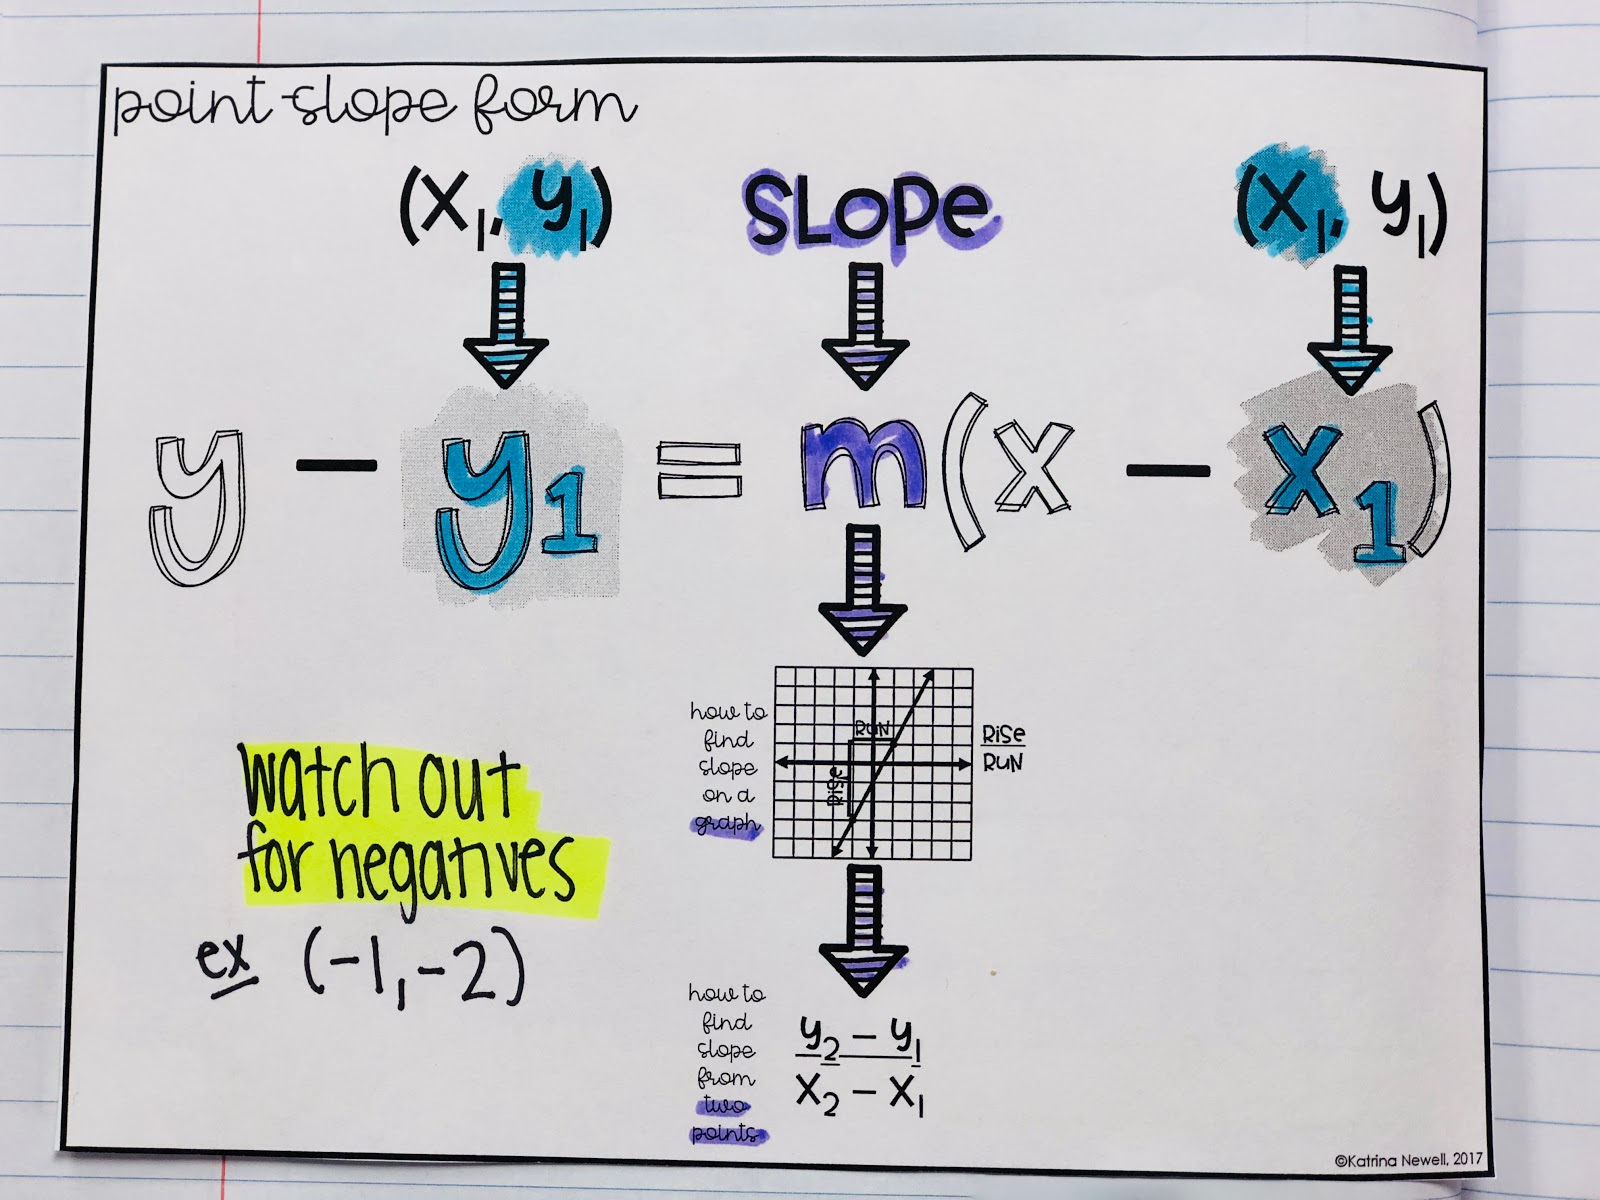 point-slope form
(x₁, y₁)
SLOPe
(x₁, y₁)
y − y₁ = m(x − x₁)
how to
find
slope
on a
graph
RUN
Rise
Rise
RUN
watch out
for negatives
ex (-1, -2)
how to
find
slope
from
two
points
y₂ − y₁
x₂ − x₁
©Katrina Newell, 2017